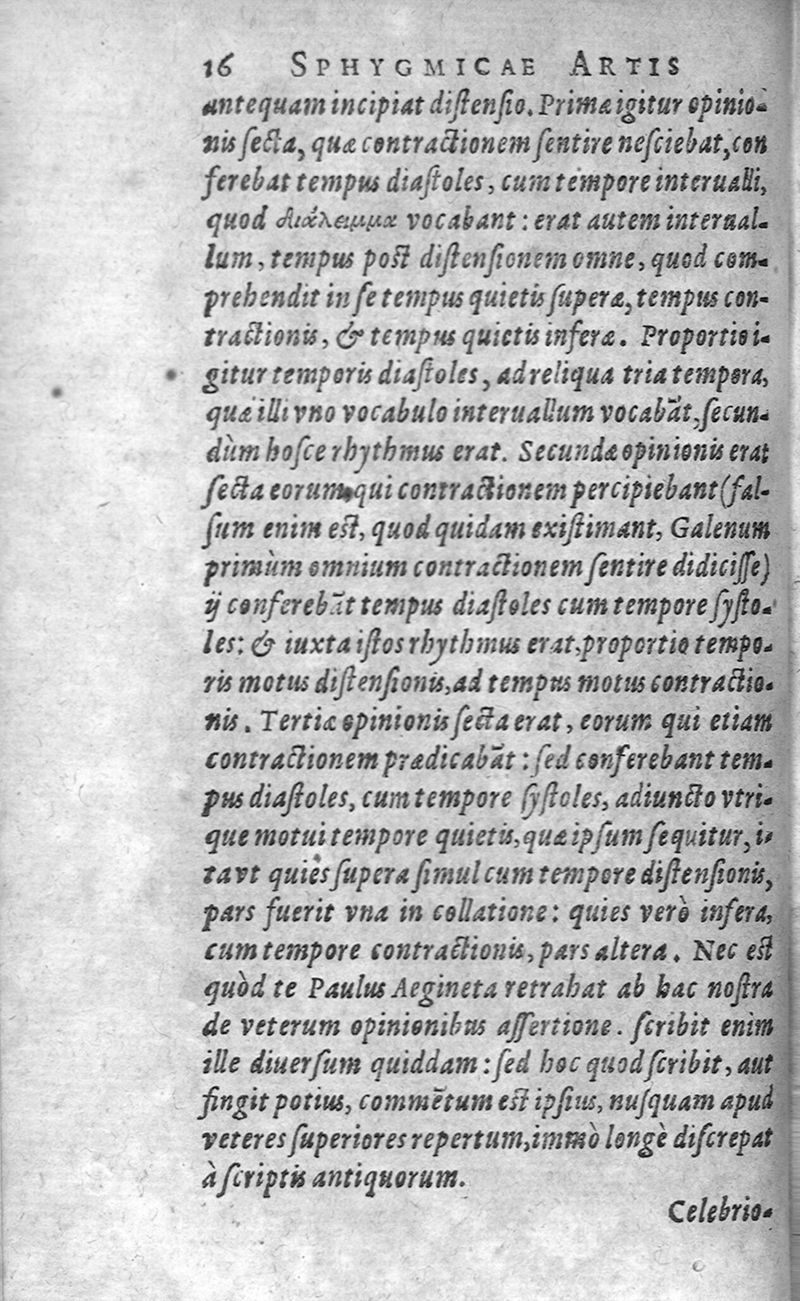 16 SPHYGMICAE ARTIS
antequam incipiat distensio. Primæ igitur opinio-
nis secta, quæ contractionem sentire nesciebat, con
ferebat tempus diastoles, cum tempore interualli,
quod διάλειμμα vocabant: erat autem interual-
lum, tempus post distensionem omne, quod com-
prehendit in se tempus quietis superæ, tempus con-
tractionis, & tempus quietis inferæ. Proportio i-
gitur temporis diastoles, ad reliqua tria tempora,
quæ illi vno vocabulo interuallum vocabāt, secun-
dùm hosce rhythmus erat. Secundæ opinionis erat
secta eorum, qui contractionem percipiebant (fal-
sum enim est, quod quidam existimant, Galenum
primùm omnium contractionem sentire didicisse)
ij conferebāt tempus diastoles cum tempore systo-
les: & iuxta istos rhythmus erat, proportio tempo-
ris motus distensionis, ad tempus motus contractio-
nis. Tertiæ opinionis secta erat, eorum qui etiam
contractionem prædicabāt: sed conferebant tem-
pus diastoles, cum tempore systoles, adiuncto vtri-
que motui tempore quietis, quæ ipsum sequitur, i-
ta vt quies supera simul cum tempore distensionis,
pars fuerit vna in collatione: quies verò infera,
cum tempore contractionis, pars altera. Nec est
quòd te Paulus Aegineta retrahat ab hac nostra
de veterum opinionibus assertione. scribit enim
ille diuersum quiddam: sed hoc quod scribit, aut
fingit potius, commētum est ipsius, nusquam apud
veteres superiores repertum, immò longè discrepat
à scriptis antiquorum.
Celebrio-